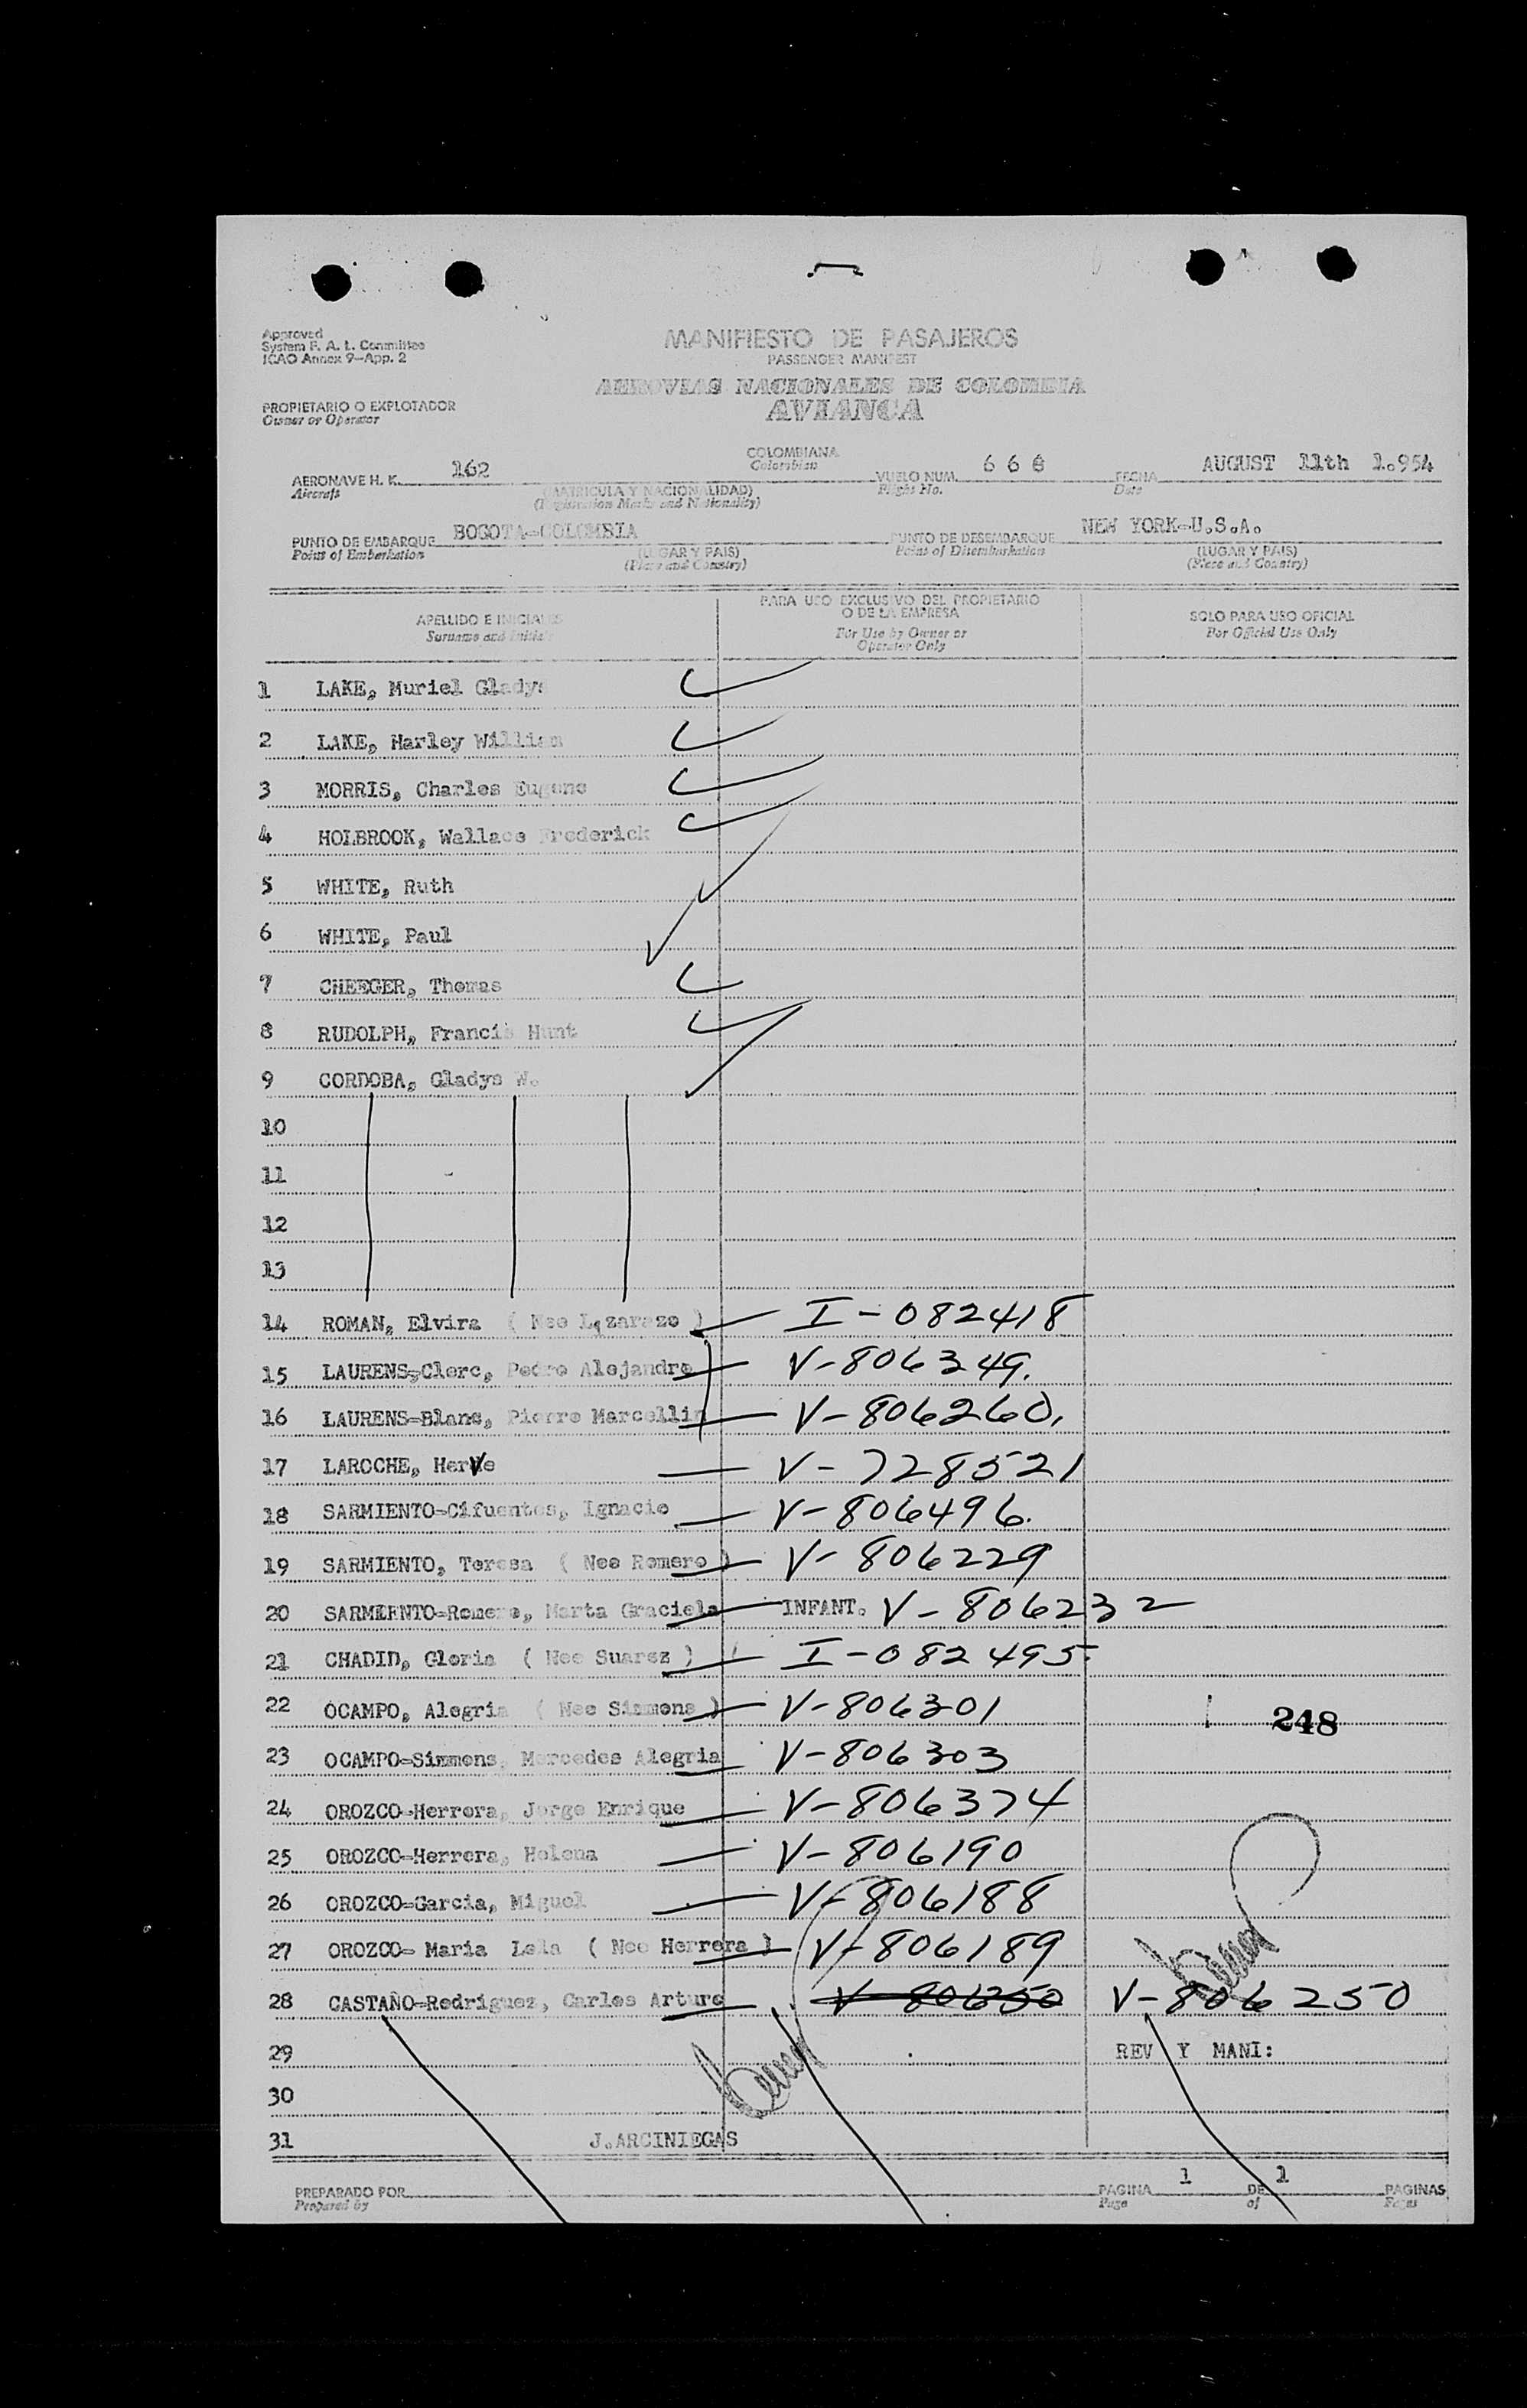 Approved
System F. A. L. Committee
ICAO Annex 9-App. 2
MANIFIESTO DE PASAJEROS
PASSENGER MANIFEST
AEROVIAS NACIONALES DE COLOMBIA
AVIANCA
PROPIETARIO O EXPLOTADOR
Owner or Operator
AERONAVE H. K. 162 COLOMBIANA VUELO NUM. 6 6 6 FECHA AUGUST 11th 1.954
Aircraft (MATRICULA Y NACIONALIDAD) Colombian Flight No. Date
(Registration Marks and Nationality)
PUNTO DE EMBARQUE BOGOTA-COLOMBIA PUNTO DE DESEMBARQUE NEW YORK-U.S.A.
Point of Embarkation (LUGAR Y PAIS) Point of Disembarkation (LUGAR Y PAIS)
(Place and Country) (Place and Country)
APELLIDO E INICIALES PARA USO EXCLUSIVO DEL PROPIETARIO O DE LA EMPRESA SOLO PARA USO OFICIAL
Surname and Initials For Use by Owner or Operator Only For Official Use Only
1 LAKE, Muriel Gladys
2 LAKE, Harley William
3 MORRIS, Charles Eugene
4 HOLBROOK, Wallace Frederick
5 WHITE, Ruth
6 WHITE, Paul
7 CHEEGER, Thomas
8 RUDOLPH, Francis Hunt
9 CORDOBA, Gladys W.
10
11
12
13
14 ROMAN, Elvira ( Nee Lizarazo ) I-082418
15 LAURENS-Clerc, Pedro Alejandro V-806349.
16 LAURENS-Blanc, Pierre Marcellin V-806260.
17 LAROCHE, Herve V-728521
18 SARMIENTO-Cifuentes, Ignacio V-806496.
19 SARMIENTO, Teresa ( Nee Romero ) V-806229
20 SARMIENTO-Romero, Marta Graciela INFANT. V-806232
21 CHADID, Gloria ( Nee Suarez ) I-082495.
22 OCAMPO, Alegria ( Nee Simmons ) V-806301
248
23 OCAMPO-Simmons, Mercedes Alegria V-806303
24 OROZCO-Herrera, Jorge Enrique V-806374
25 OROZCO-Herrera, Helena V-806190
26 OROZCO-Garcia, Miguel V-806188
27 OROZCO- Maria Lela ( Nee Herrera ) V-806189
28 CASTAÑO-Rodriguez, Carlos Arturo V-806250 V-806250
29 REV Y MANI:
30
31 J.ARCINIEGAS
PREPARADO POR PAGINA 1 DE 1 PAGINAS
Prepared by Page of Pages